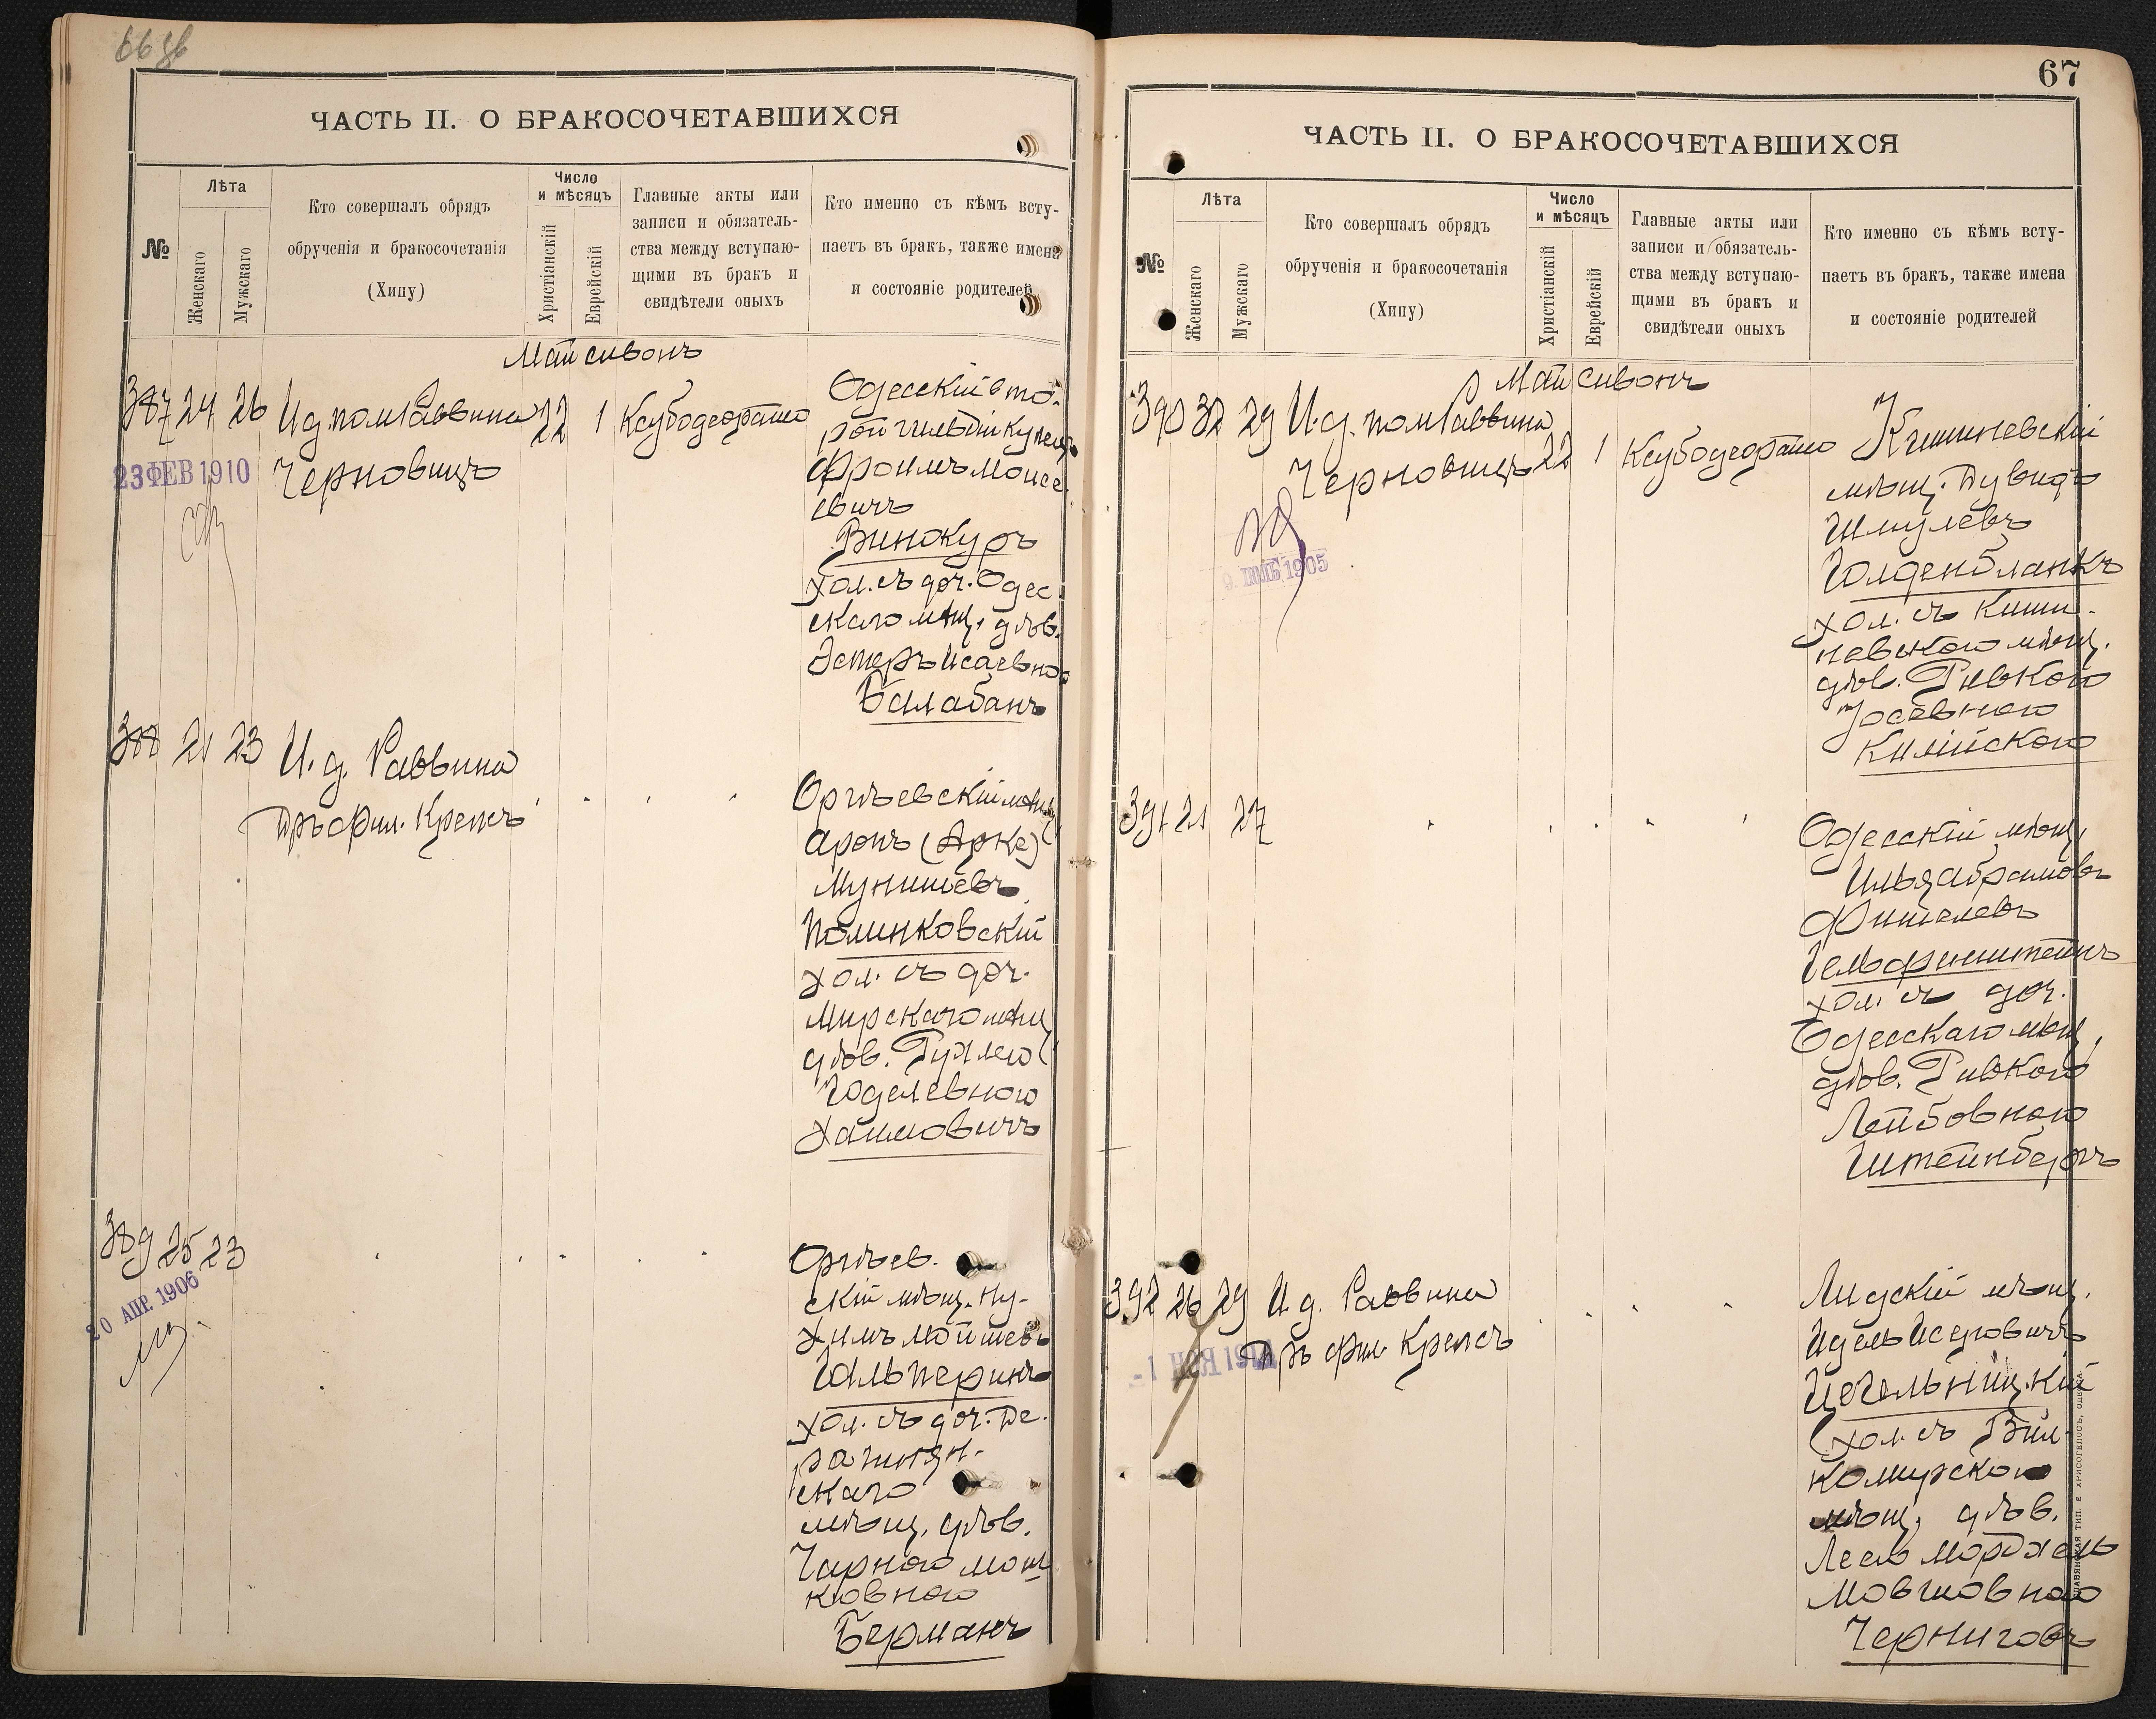 ЧАСТЬ II. О БРАКОСОЧЕТАВШИХСЯ
№
Лѣта
Женскаго
Мужскаго
Кто совершалъ обрядъ
обрученія и бракосочетанія
(Хипу)
Число
и мѣсяцъ
Христіанскій
Еврейскій
Главные акты или
записи и обязатель-
ства между вступаю-
щими въ бракъ и
свидѣтели оныхъ
Кто именно съ кѣмъ всту-
паетъ въ бракъ, также имена
и состояніе родителей
Май сивонъ
387 24 26 И.д. пом. Раввина 22 1
Черновицъ
23 ФЕВ 1910
Одесскій вто-
рой гильдіи купецъ
Фроимъ Моисе-
евичъ
Винокуръ
хол. съ доч. Одес-
скаго мѣщ. дѣв.
Эстеръ Исаевною
Балабанъ
388 21 23 И. д. Раввина
Д-ръ фил. Крепсъ
Оргѣевскій мѣщ.
Аронъ (Арке)
Мунишевъ
Полинковскій
хол. съ доч.
Мирскаго мѣщ.
дѣв. Рухлею
Годелевною
Хаимовичъ
389 25 23
20 АПР. 1906
Оргѣев-
скій мѣщ. Ну-
химъ Мойшевъ
Гальперинъ
хол. съ доч. Де-
ражнян-
скаго
мѣщ. дѣв.
Чарною Мош-
ковною
Берманъ
67
ЧАСТЬ II. О БРАКОСОЧЕТАВШИХСЯ
№
Лѣта
Женскаго
Мужскаго
Кто совершалъ обрядъ
обрученія и бракосочетанія
(Хипу)
Число
и мѣсяцъ
Христіанскій
Еврейскій
Главные акты или
записи и обязатель-
ства между вступаю-
щими въ бракъ и
свидѣтели оныхъ
Кто именно съ кѣмъ всту-
паетъ въ бракъ, также имена
и состояніе родителей
Май сивонъ
390 32 29 И.д. пом. Раввина
Черновицъ 22 1
1905
Кишиневскій
мѣщ. Дувидъ
Шмулевъ
Голденбланкъ
хол. съ Киши-
невскою мѣщ.
дѣв. Ривкою
Іосевною
Килійскою
391 21 27
Одесскій мѣщ.
Илья Абрамовъ
Фишелевъ
Гельфинштейнъ
хол. съ доч.
Одесскаго мѣщ.
дѣв. Ривкою
Лейбовною
Штейнбергъ
392 26 29 И. д. Раввина
Д-ръ фил. Крепсъ
Лидскій мѣщ.
Идель Исеровичъ
Цегельницкій
хол. съ Вил-
комирскою
мѣщ. дѣв.
Леею Мордхель
Мовшовною
Черниговъ